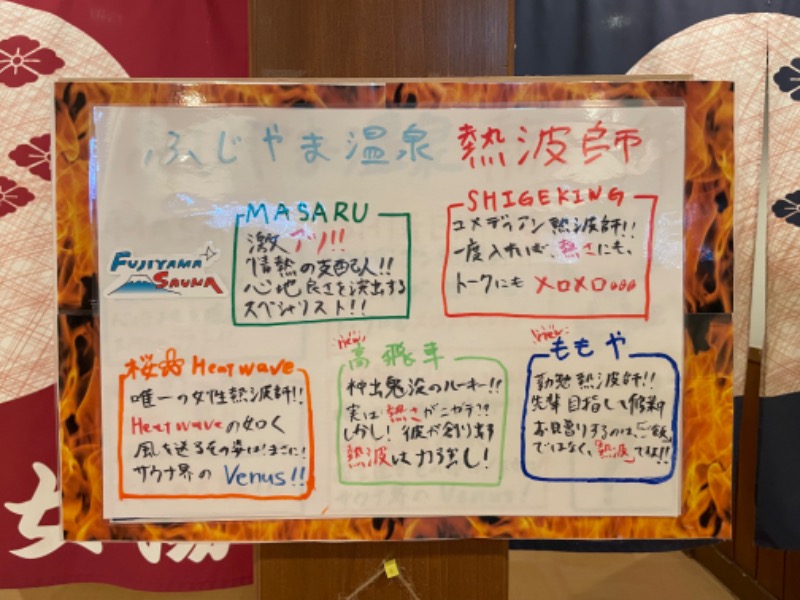 ふじやま温泉 熱波師
FUJIYAMA
SAUNA
MASARU
激アツ!!
情熱の支配人!!
心地良さを演出する
スペシャリスト!!
SHIGEKING
コメディアン熱波師!!
一度入れば、熱さにも、
トークにもメロメロ。。。
桜 Heatwave
唯一の女性熱波師!!
Heatwaveの如く
風を送るその姿はまさに!
サウナ界のVenus!!
new
高飛車
神出鬼没のルーキー!!
実は熱さがニガテ??
しかし!彼が創り出す
熱波は力強し!
new
ももや
勤勉熱波師!!
先輩目指して修業
お見舞りするのは、ご飯
ではなく、「熱波」ですよ!!
女
湯